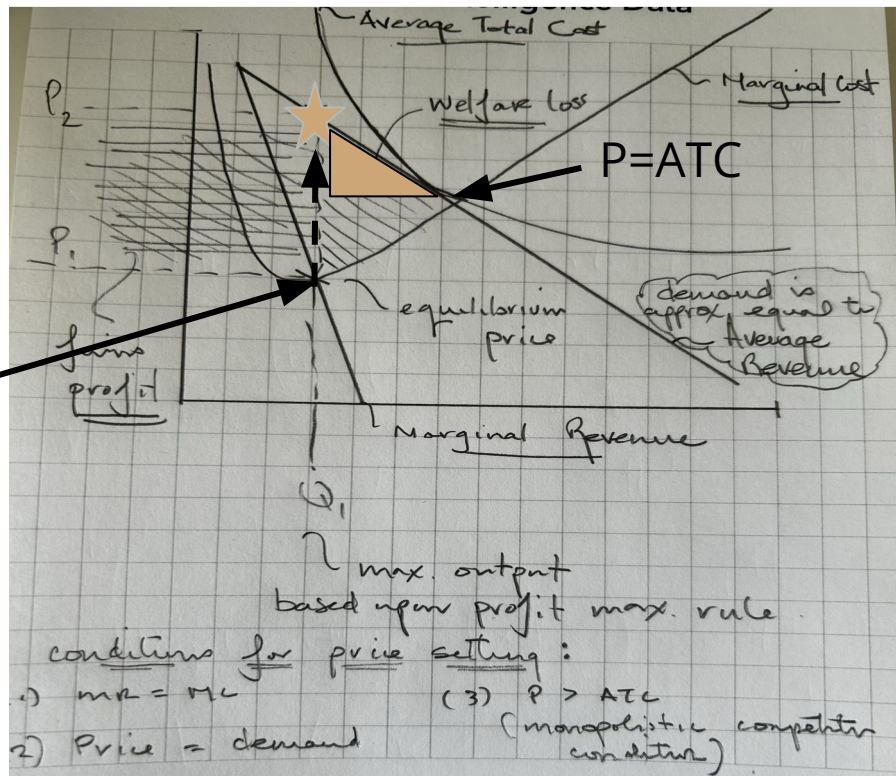 lligence Data
Average Total Cost
Marginal Cost
P2
Welfare loss
P=ATC
P1
equilibrium
price
demand is
approx. equal to
Average
Revenue
Gains
profit
Marginal Revenue
Q1
max. output
based upon profit max. rule
conditions for price setting:
1) MR = MC
(3) P > ATC
(monopolistic competitn
conditn)
2) Price = demand